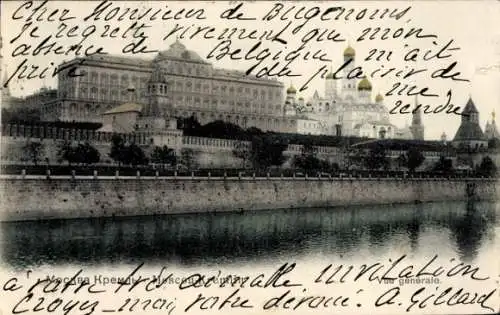 Cher Monsieur de Bugenoms,
je regrette vivement que mon
absence de Belgique m'ait
privé du plaisir de
me rendre
Москва Кремль Moscou Kremlin
Vue générale.
à votre très aimable invitation
Croyez-moi votre dévoué. A. Gillard